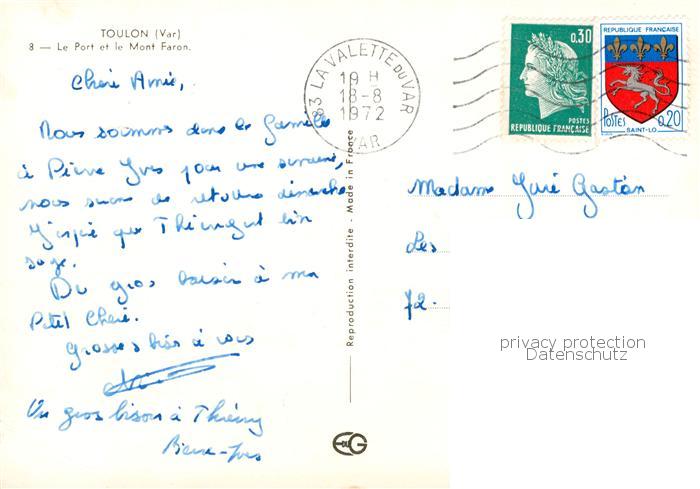 TOULON (Var)
8 — Le Port et le Mont Faron.
Cheré Amie,
Nous sommes dans la famille
à Pierre Yves pour une semaine,
nous de retour dimanche
J'espère que Thierry est bien
sage.
Du gros baiser à ma
Petit Cheré.
Grosses bises à vous
Un gros bisou à Thierry
Pierre-Yves
Reproduction interdite. Made in France
83 LA VALETTE DU VAR
19 H
18-8
1972
VAR
0.30
POSTES
REPUBLIQUE FRANÇAISE
REPUBLIQUE FRANÇAISE
POSTES 0,20
SAINT-LO
Madame Gaston
Les
72.
privacy protection
Datenschutz